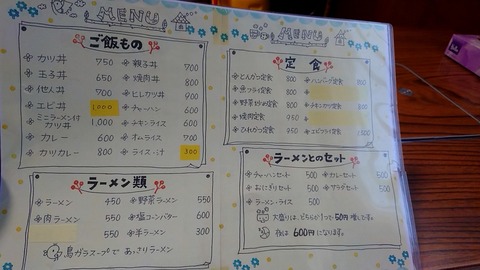 MENU
ご飯もの
カツ丼 750
玉子丼 650
他人丼 700
エビ丼 1,000
ミニラーメン付
カツ丼 1,000
カレー 600
カツカレー 800
親子丼 700
焼肉丼 800
ヒレカツ丼 900
チャーハン 600
チキンライス 600
オムライス 700
ライス・汁 300
ラーメン類
ラーメン 450
肉ラーメン 550
550
野菜ラーメン 550
塩コーンバター 600
半ラーメン 300
鳥ガラスープで あっさりラーメン
MENU
定食
とんかつ定食 800
魚フライ定食 800
野菜炒め定食 800
焼肉定食 950
ひれかつ定食 950
ハンバーグ定食 800
チキンカツ定食 800
エビフライ定食
ラーメンとのセット
チャーハンセット 500
おにぎりセット 500
ラーメン・ライス 500
カレーセット 500
サラダセット 500
大盛りは、どちらか1つで50円増しです。
600円になります。